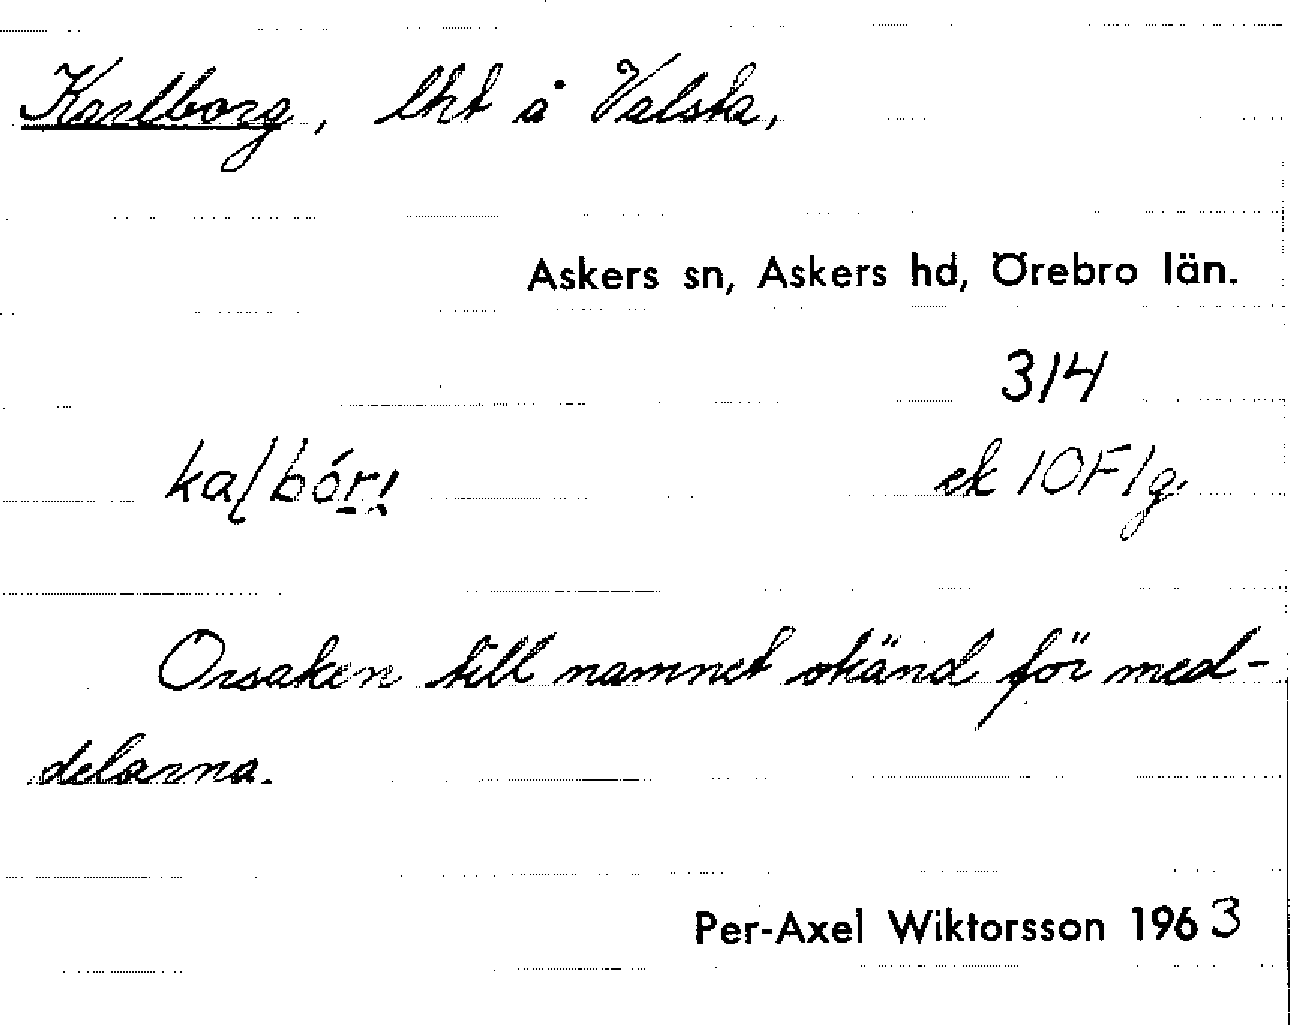 Karlborg, lht å Valsta,
Askers sn, Askers hd, Örebro län.
314
ek 10F1g
Orsaken till namnet okänd för med-
delarna.
Per-Axel Wiktorsson 1963